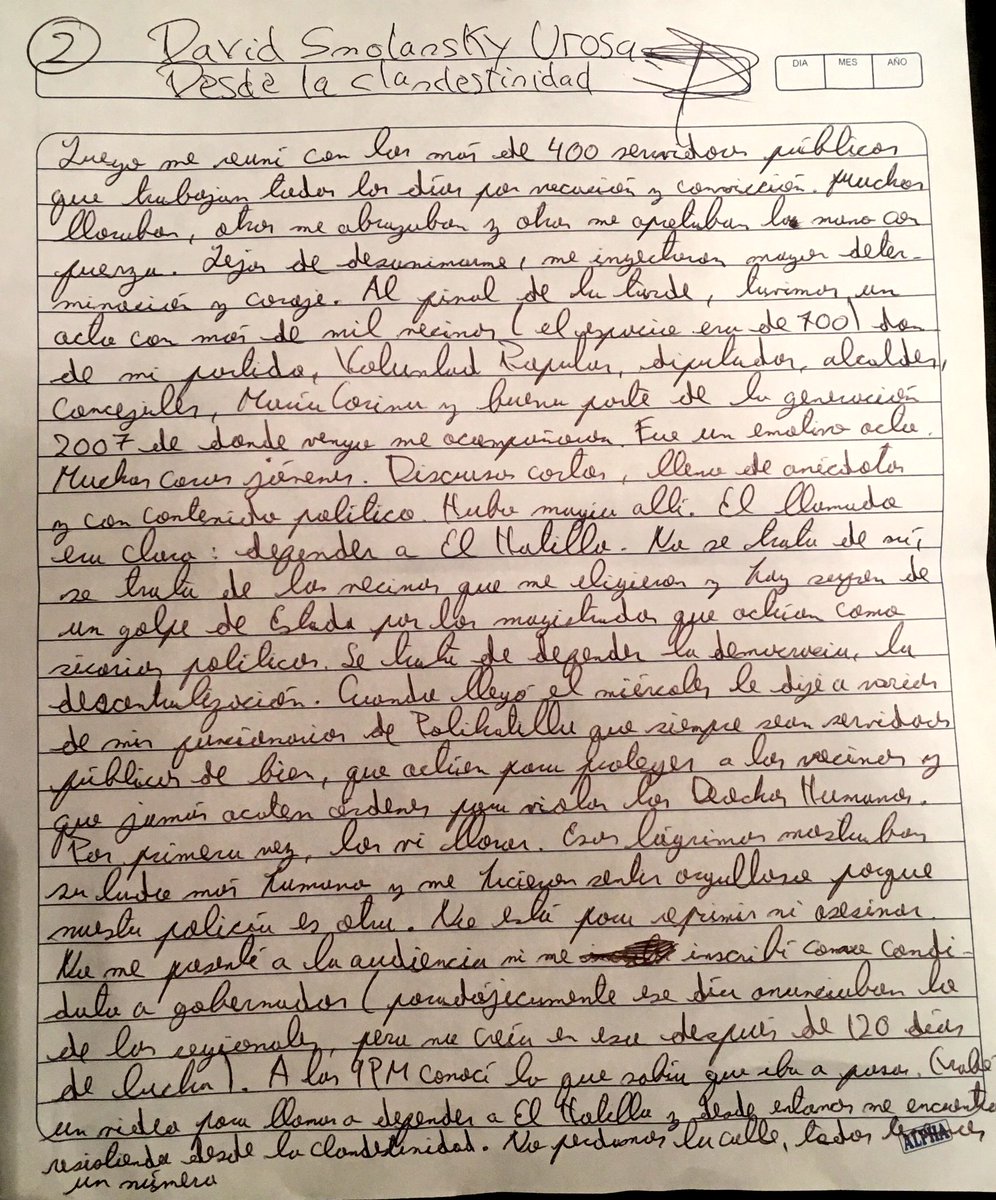 2 David Smolansky Urosa
Desde la clandestinidad
DIA MES AÑO
Luego me reuní con los más de 400 servidores públicos
que trabajan todos los días por vocación y convicción. Muchos
lloraban, otros me abrazaban y otros me apretaban la mano con
fuerza. Lejos de desanimarme, me inyectaron mayor deter-
minación y coraje. Al final de la tarde, tuvimos un
acto con más de mil vecinos (el espacio era de 700) don
de mi partido, Voluntad Popular, diputados, alcaldes,
concejales, María Corina y buena parte de la generación
2007 de donde vengo me acompañaron. Fue un emotivo acto.
Muchas caras jóvenes. Discursos cortos, lleno de anécdotas
y con contenido político. Hubo magia allí. El llamado
era claro: defender a El Hatillo. No se trata de mí,
se trata de los vecinos que me eligieron y hoy sufren de
un golpe de Estado por los magistrados que actúan como
sicarios políticos. Se trata de defender la democracia, la
descentralización. Cuando llegó el miércoles le dije a varios
de mis funcionarios de Polihatillo que siempre sean servidores
públicos de bien, que actúen para proteger a los vecinos y
que jamás acaten órdenes para violar los Derechos Humanos.
Por primera vez, los vi llorar. Esas lágrimas mostraban
su lado más humano y me hicieron sentir orgulloso porque
nuestra policía es otra. No está para reprimir ni asesinar.
No me presenté a la audiencia ni me inscribí como candi-
dato a gobernador (paradójicamente ese día anunciaban lo
de las regionales, pero no creía en eso después de 120 días
de lucha). A las 9PM conocí lo que sabía que iba a pasar. Grabé
un video para llamar a defender a El Hatillo y desde entonces me encuentro
resistiendo desde la clandestinidad. No perdamos la calle, todos tenemos
un número
ALPHA